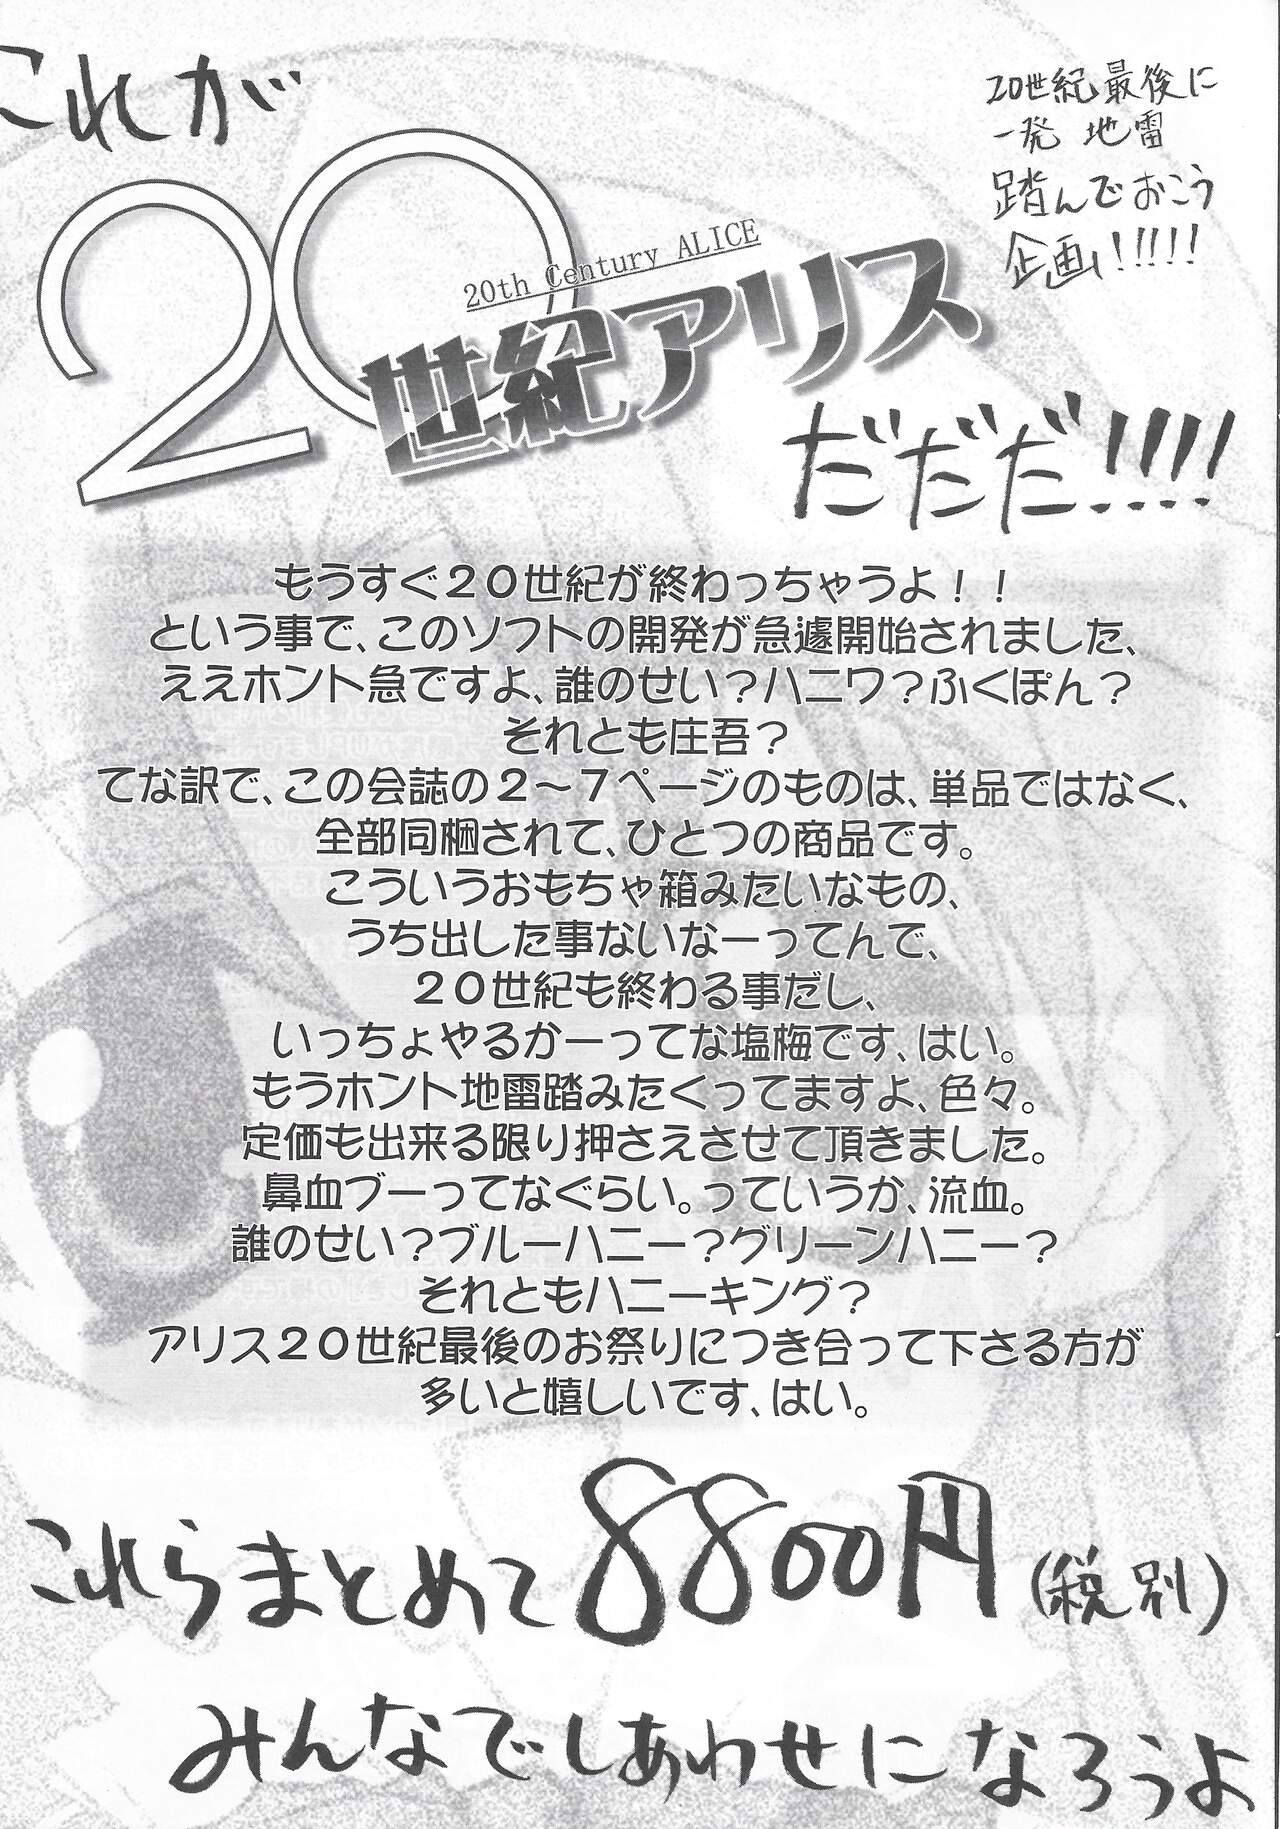 これが
20世紀最後に
一発 地雷
踏んでおこう
企画!!!!!
20世紀アリス
20th Century ALICE
だだだ!!!!
もうすぐ20世紀が終わっちゃうよ!!
という事で、このソフトの開発が急遽開始されました、
ええホント急ですよ、誰のせい?ハニワ?ふくぽん?
それとも庄吾?
てな訳で、この会誌の2~7ページのものは、単品ではなく、
全部同梱されて、ひとつの商品です。
こういうおもちゃ箱みたいなもの、
うち出した事ないなーってんで、
20世紀も終わる事だし、
いっちょやるかーってな塩梅です、はい。
もうホント地雷踏みたくってますよ、色々。
定価も出来る限り押さえさせて頂きました。
鼻血ブーってなぐらい。っていうか、流血。
誰のせい?ブルーハニー?グリーンハニー?
それともハニーキング?
アリス20世紀最後のお祭りにつき合って下さる方が
多いと嬉しいです、はい。
これらまとめて8800円(税別)
みんなでしあわせになろうよ